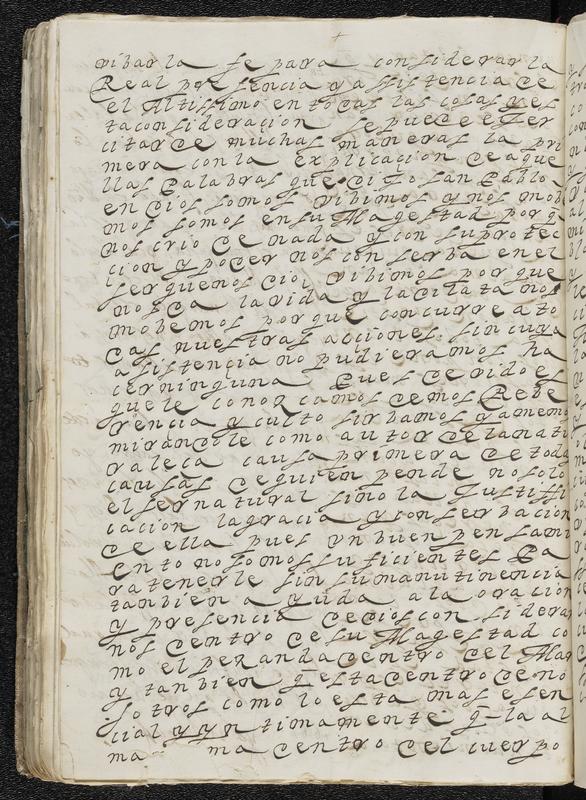 +
vibar la fe para considerar la
Real presencia y assistencia de
el Altissimo en todas las cosas y es
ta consideracion se puede exer
citar de muchas maneras la pri
mera con la explicacion de aque
llas Palabras que dijo san Pablo
en dios somos vibimos y nos mob
mos somos en su Magestad porq̄
nos crio de nada y con su protec
cion y poder nos conserba en el
ser que nos dio, vibimos por que
nos da la vida y la dilata nos
mobemos por que concurre a to
das nuestras acciones sin cuya
asistencia no pudieramos ha
cer ninguna Pues devido es
que le conozcamos demos Rebe
rencia y culto sirbamos y amemo
mirandole como autor de la natu
raleça causa primera de toda
causas de quien pende no solo
el ser natural sino la Justiffi
cacion la gracia y conserbacion
de ella pues un buen pensami
ento no somos suficientes Pa
ra tenerle sin su manutinencia
tambien ayuda a la oracion
y presencia de dios considerar
nos centro de su Magestad co
mo el pez anda centro del Mar
y tanbien q̄ esta dentro de no
sotros como lo esta mas esen
cial y yntimamente q̄ la al
ma dentro del cuerpo